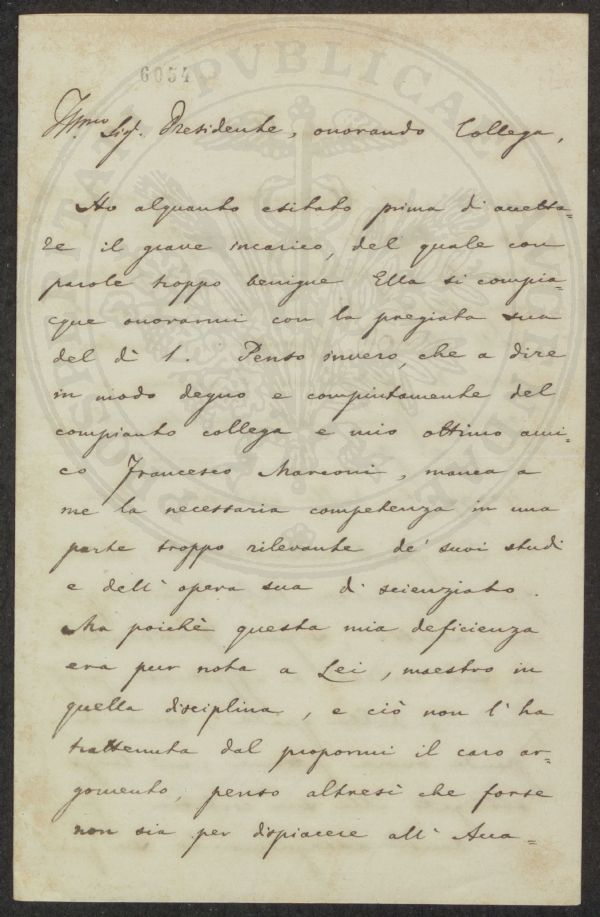 6054
Ill.mo Sig.r Presidente, onorando Collega,
Ho alquanto esitato prima di accetta=
re il grave incarico, del quale con
parole troppo benigne Ella si compia=
cque onorarmi con la pregiata sua
del dì 1. Penso invero, che a dire
in modo degno e compiutamente del
compianto collega e mio ottimo ami=
co Francesco Marconi, manca a
me la necessaria competenza in una
parte troppo rilevante de' suoi studi
e dell' opera sua di scienziato.
Ma poichè questa mia deficienza
era pur nota a Lei, maestro in
quella disciplina, e ciò non l' ha
trattenuta dal propormi il caro ar=
gomento, penso altresì che forse
non sia per dispiacere all' Acca=